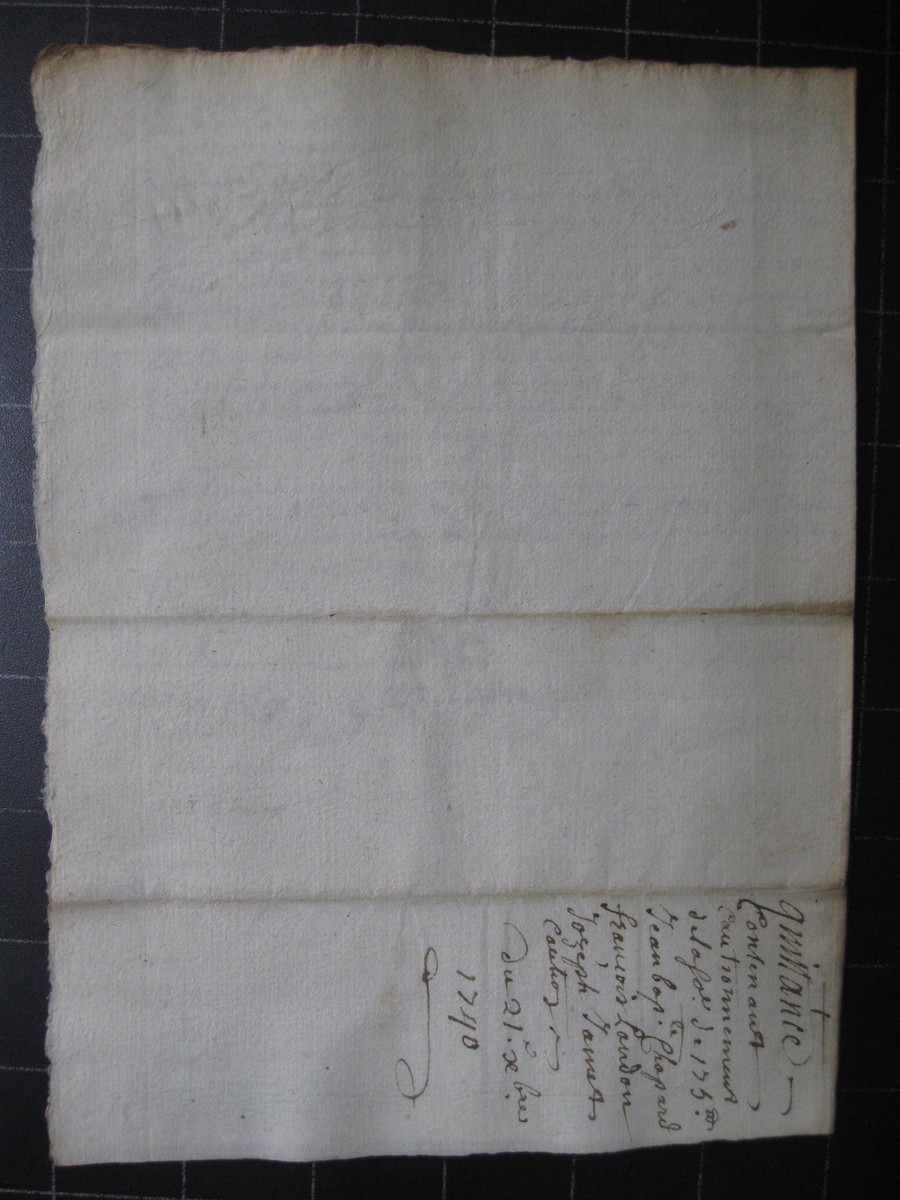 quittance
Contenant
Cautionnement
de la so.e de 175.tt
Jean bap.te Chopard
francois Loudon
Joseph Jamet
Caution
du 21.e xbre
1740